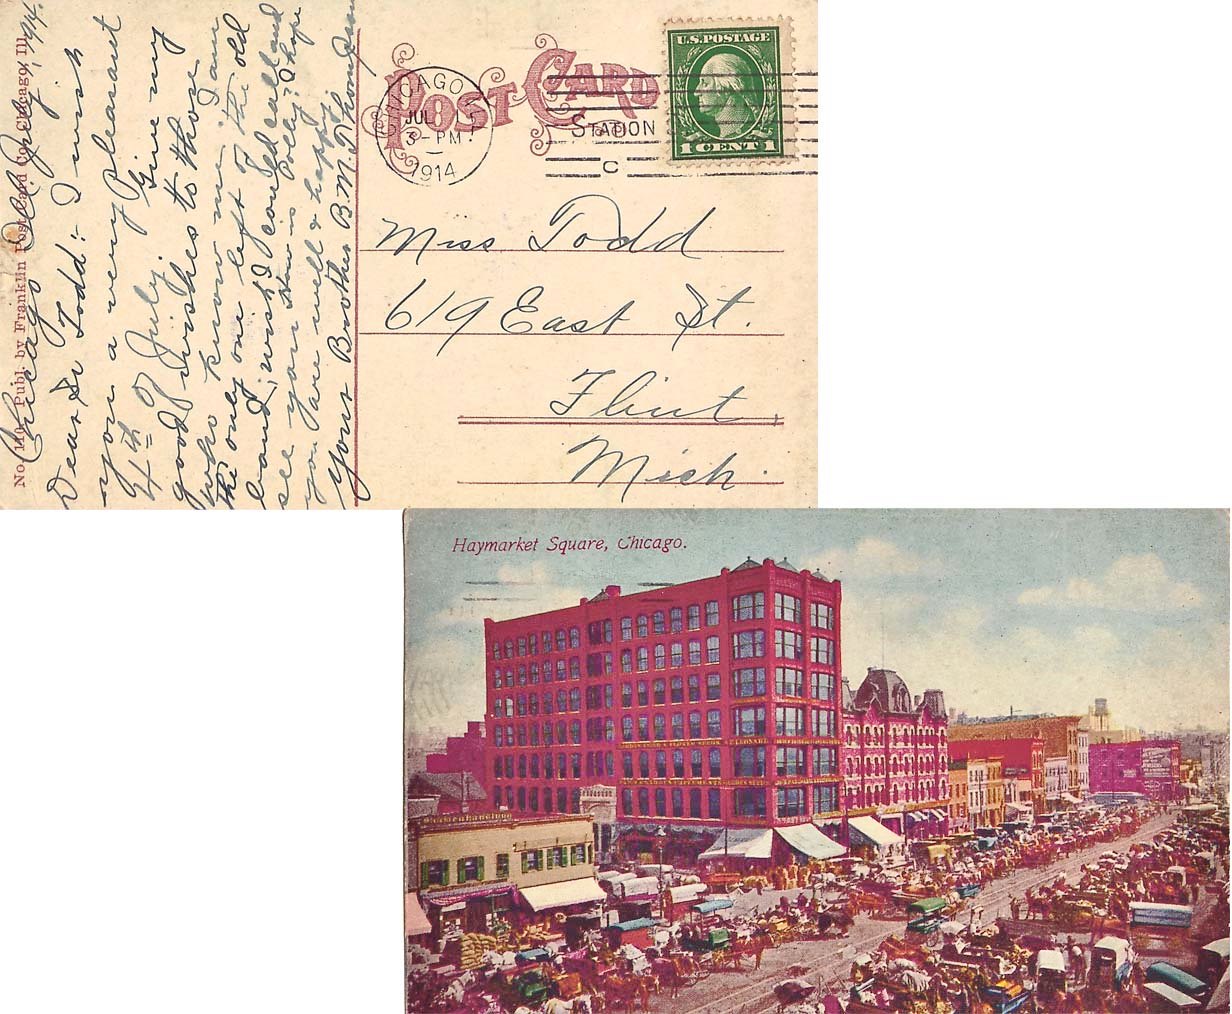 No. 110. Publ. by Franklin Post Card Co. Chicago, Ill.
Chicago Ill July 1, 1914.
Dear Sr Todd:- I wish
you a very pleasant
4th of July. Give my
good wishes to those
who know me. I am
the only one left of the old
band, wish I could call and
see you. How is Polly? I hope
you are well & happy
Your Brother B. M. Thompson
POST CARD
CHICAGO, ILL
JUL 1
3-PM
1914
STATION
C
U.S. POSTAGE
1 CENT 1
Miss Todd
619 East St.
Flint,
Mich.
Haymarket Square, Chicago.